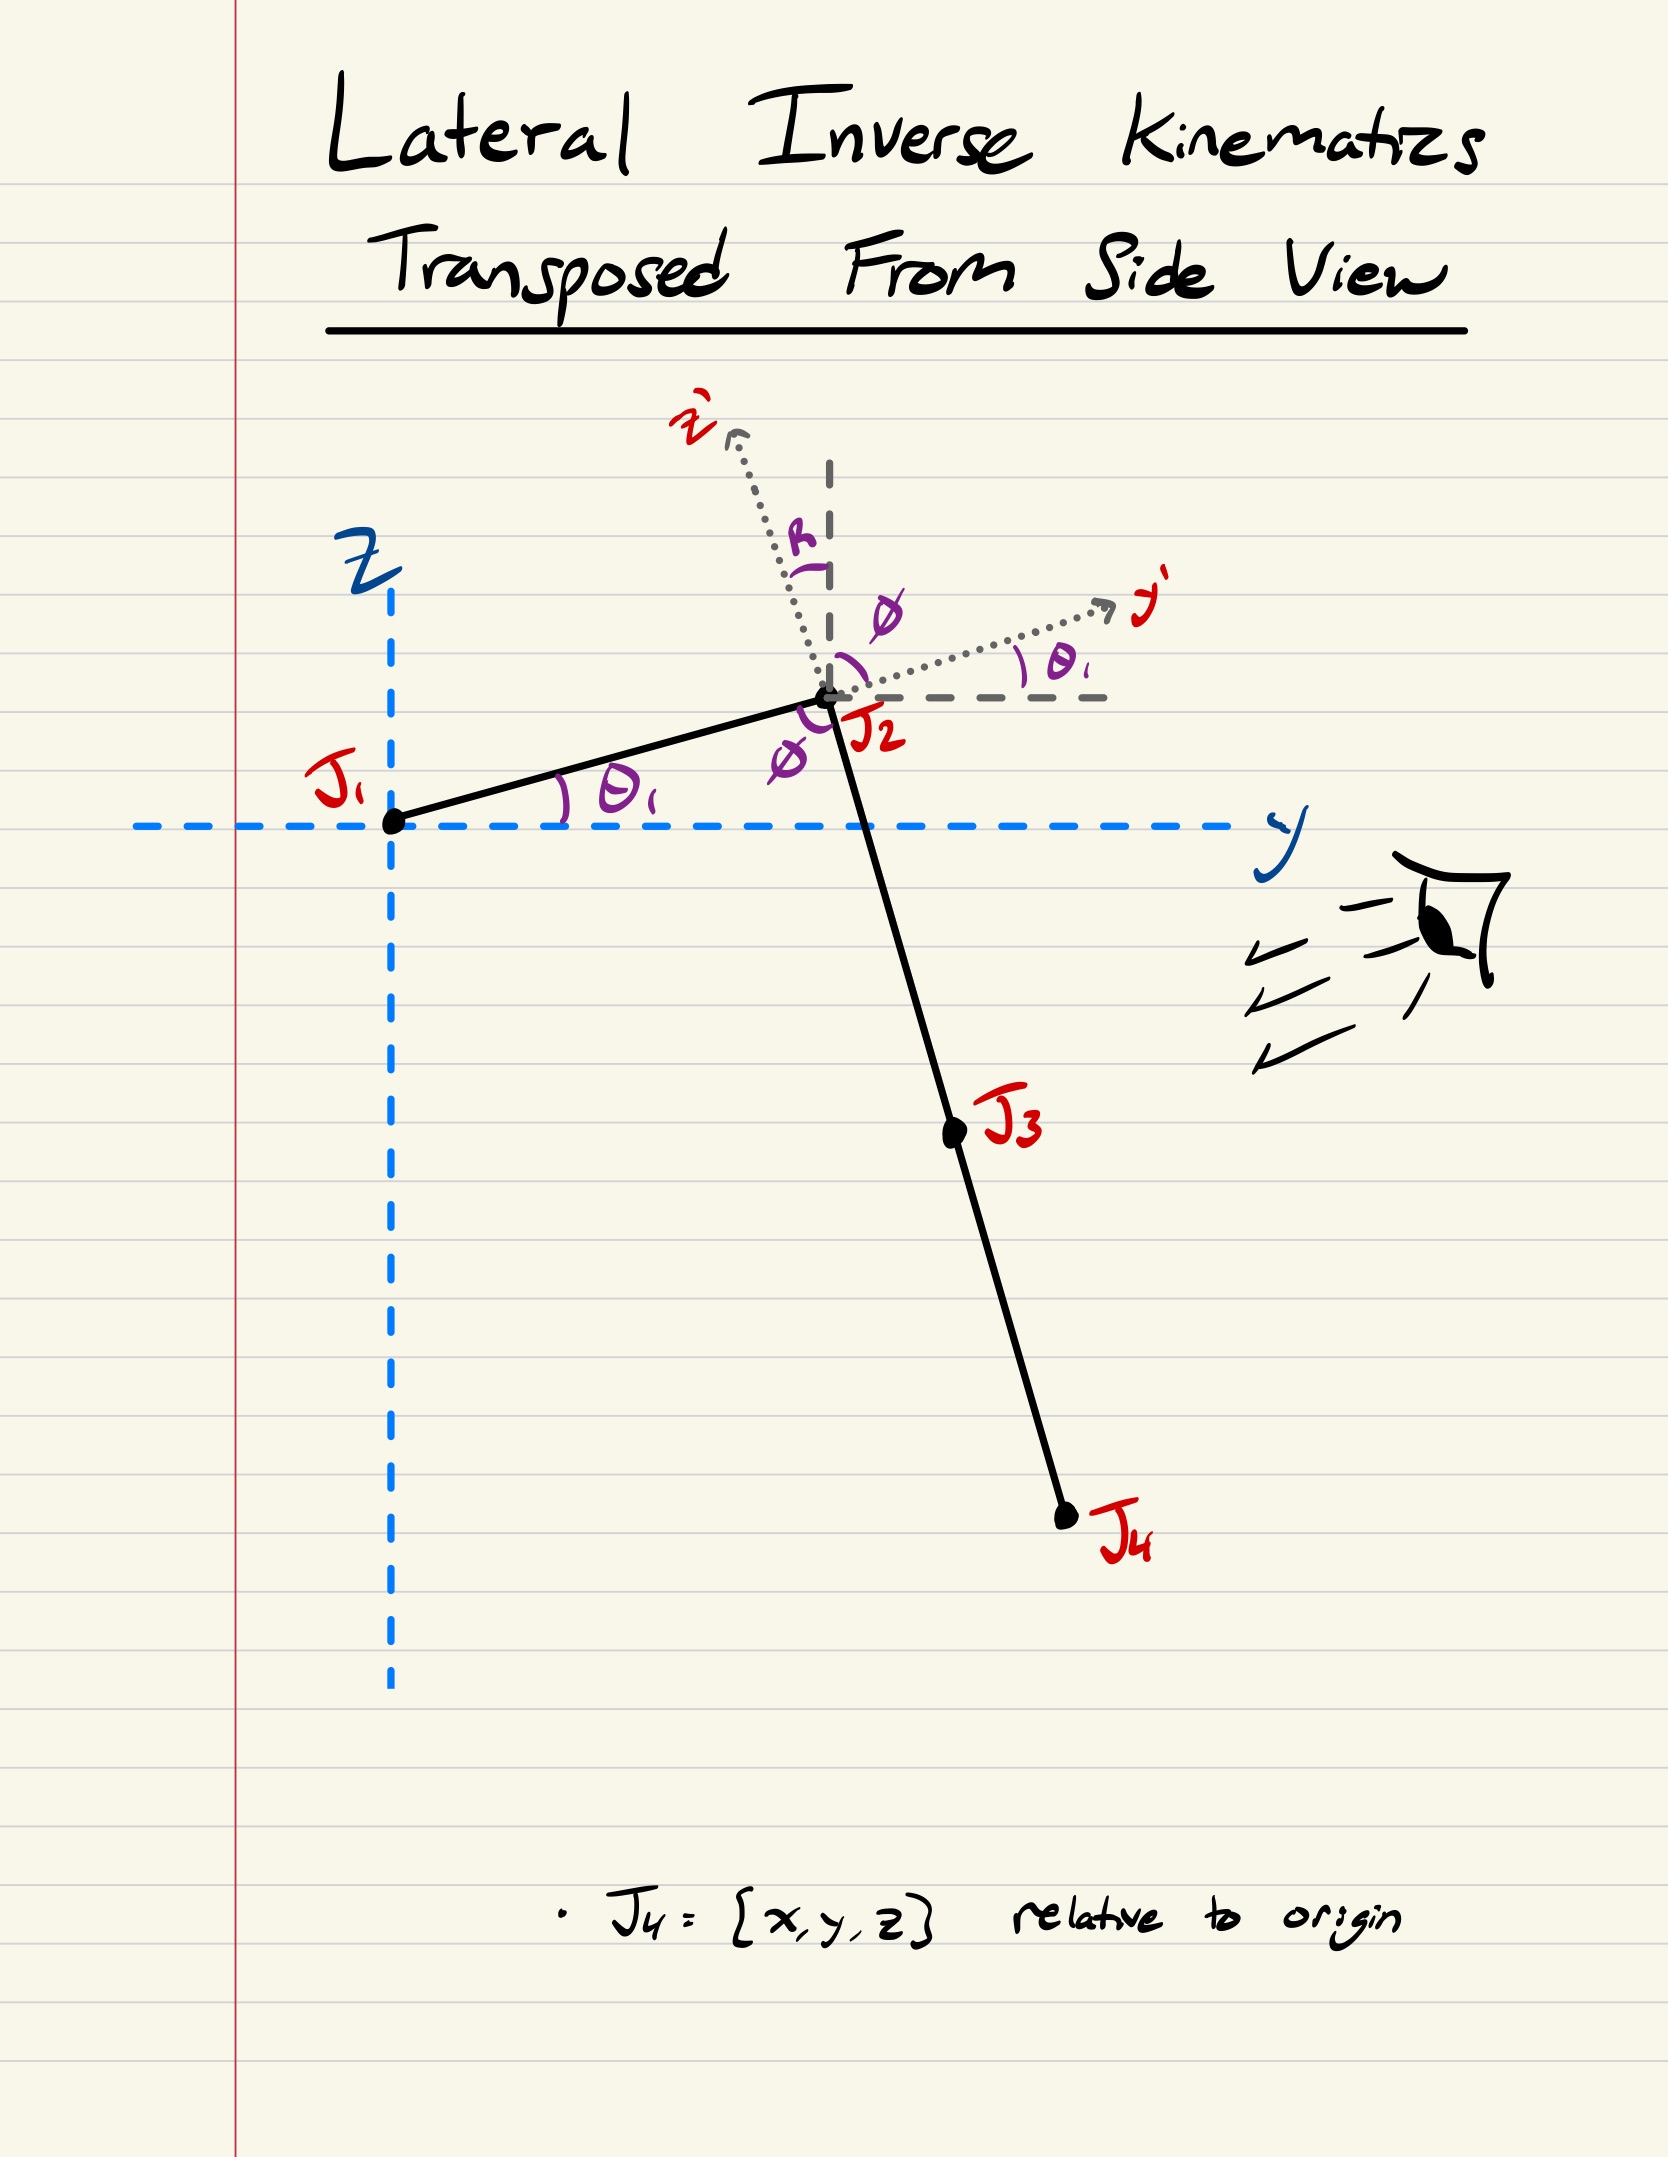 Lateral Inverse Kinematics
Transposed From Side View
z'
R
Z
ø
y'
θ₁
J2
J₁
ø
θ₁
y
J3
J4
· J4 = {x, y, z} relative to origin